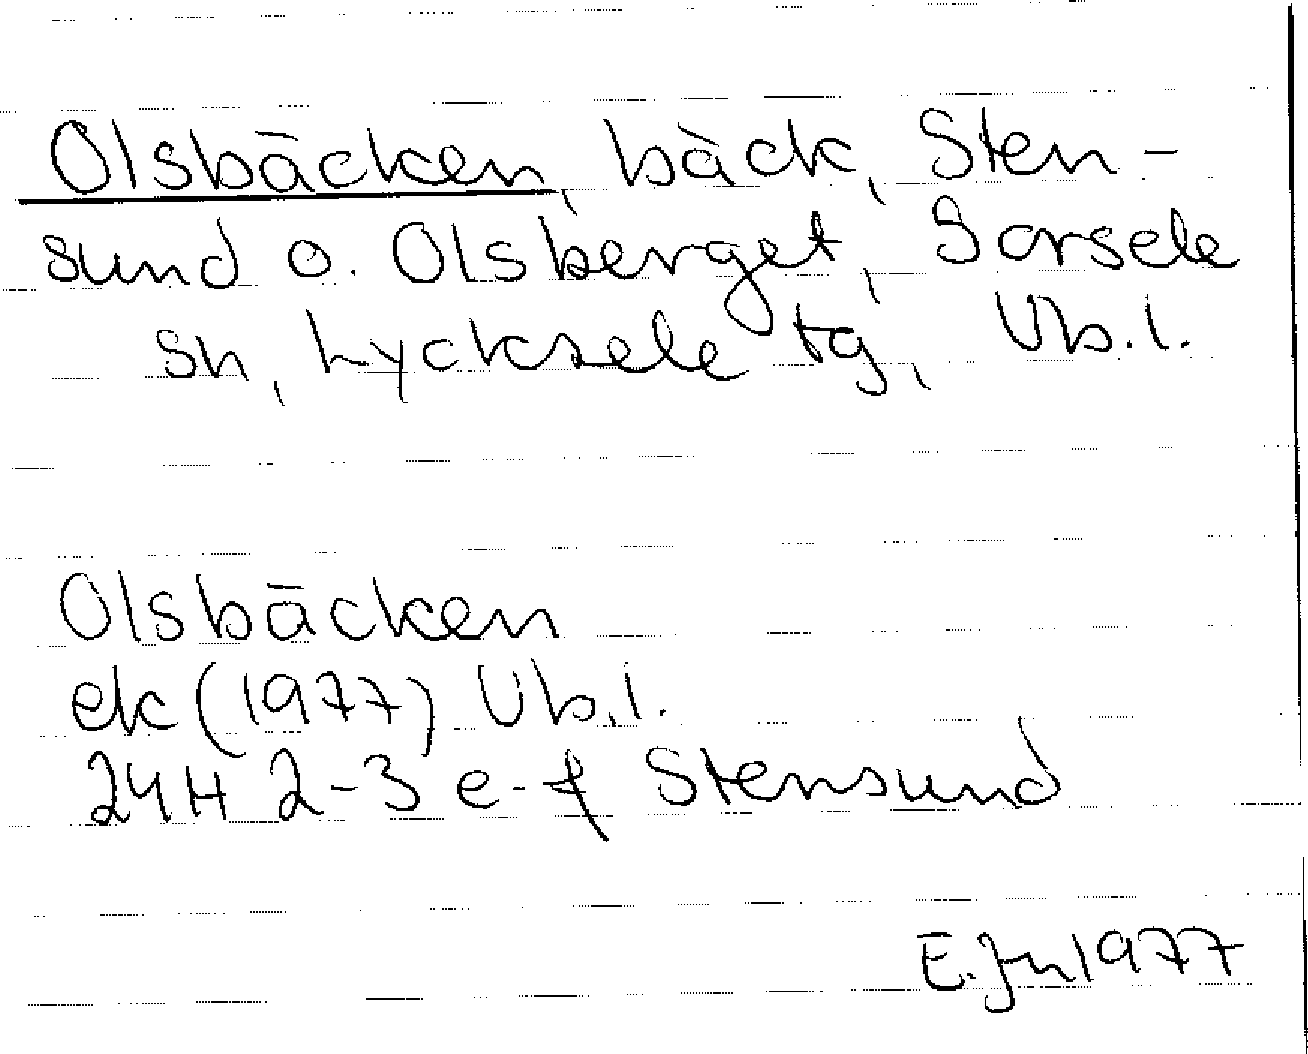 Olsbäcken, bäck, Sten-
sund o. Olsberget, Sorsele
sn, Lycksele tg, Vb.l.
Olsbäcken
ek (1977) Vb.l.
24H 2-3 e-f Stensund
E.Jn 1977